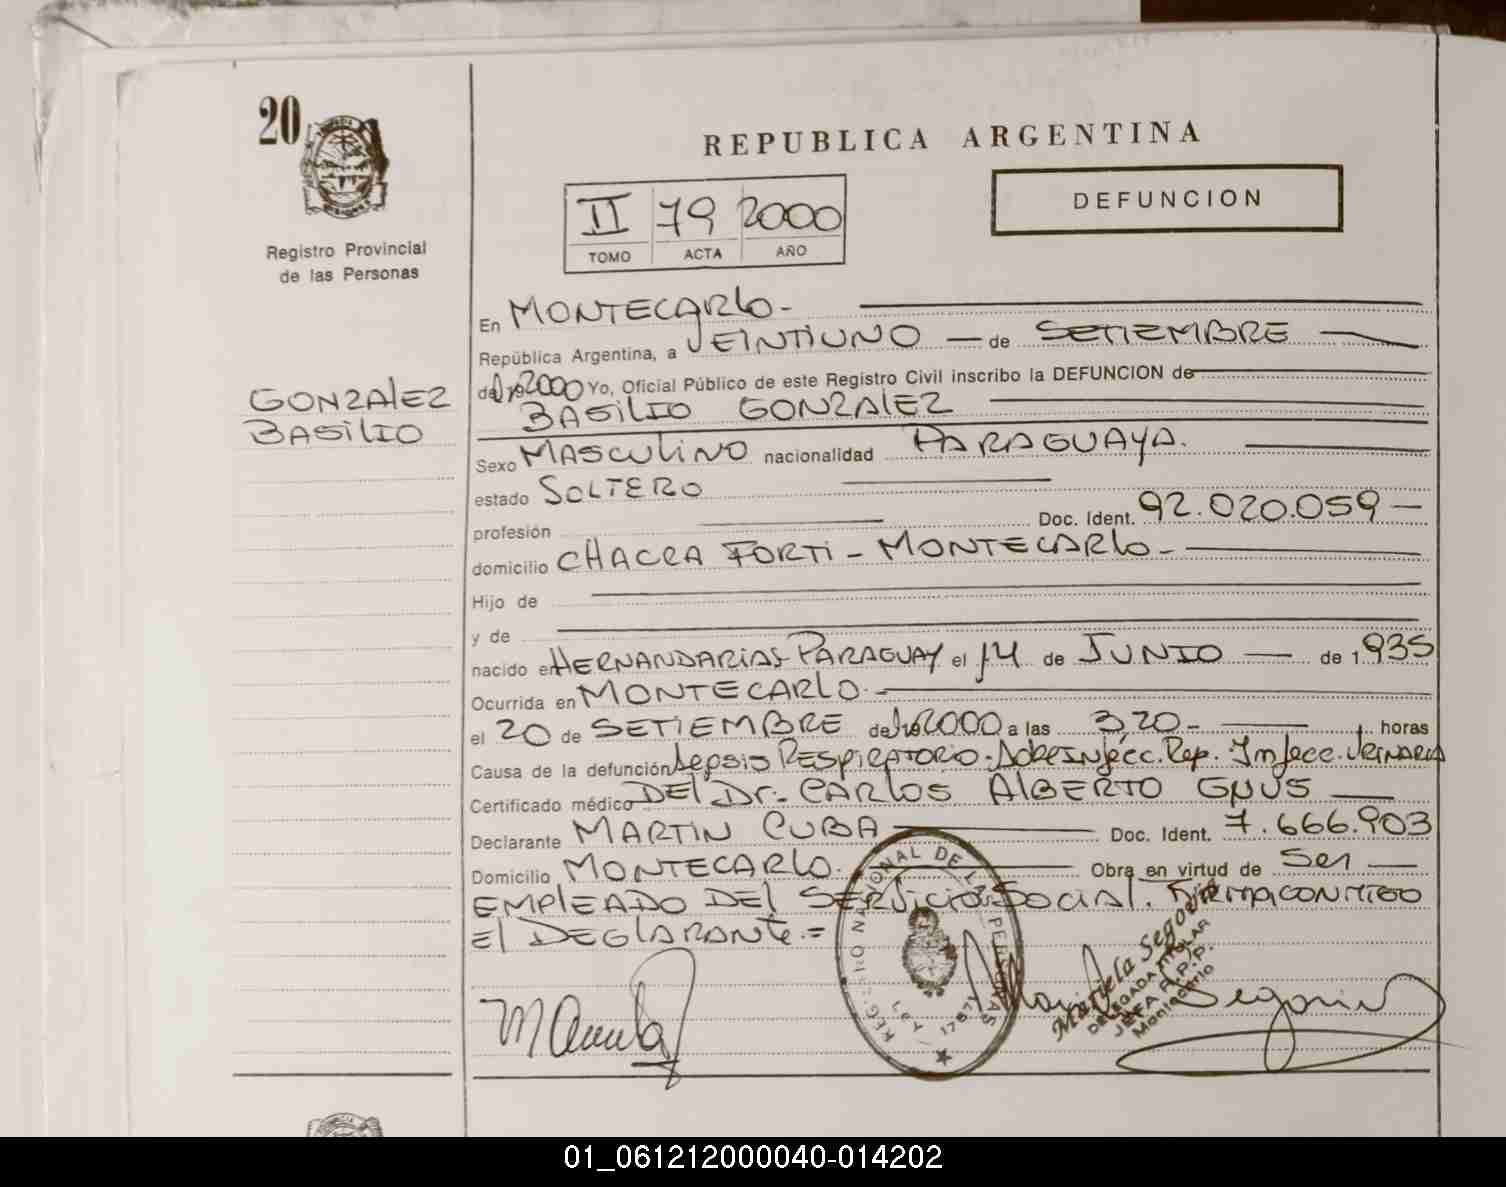 20
Registro Provincial
de las Personas
REPUBLICA ARGENTINA
DEFUNCION
II 79 2000
TOMO ACTA AÑO
GONZALEZ
BASILIO
En MONTECARLO-
República Argentina, a VEINTIUNO — de SETIEMBRE —
de 2000 Yo, Oficial Público de este Registro Civil inscribo la DEFUNCION de
BASILIO GONZALEZ
Sexo MASCULINO nacionalidad PARAGUAYA.
estado SOLTERO
profesión Doc. Ident. 92.020.059-
domicilio CHACRA FORTI - MONTECARLO-
Hijo de
y de
nacido en HERNANDARIAS-PARAGUAY el 14 de JUNIO — de 1.935
Ocurrida en MONTECARLO.-
el 20 de SETIEMBRE de 2000 a las 3,20- horas
Causa de la defunción Sepsis RESPIRATORIO-SobreINfecc. Resp. Infecc. URINARIA
Certificado médico DEL Dr.- CARLOS ALBERTO GNUS —
Declarante MARTIN CUBA Doc. Ident. 7.666.903
Domicilio MONTECARLO. Obra en virtud de Ser —
EMPLEADO DEL SERVICIO SOCIAL. FIRMA CONMIGO
El DECLARANTE.=
REGISTRO NACIONAL DE LAS PERSONAS
LEY 17671
Mariela Segovia
DELEGADA TITULAR
JEFA R.P.P.
Montecarlo
01_061212000040-014202